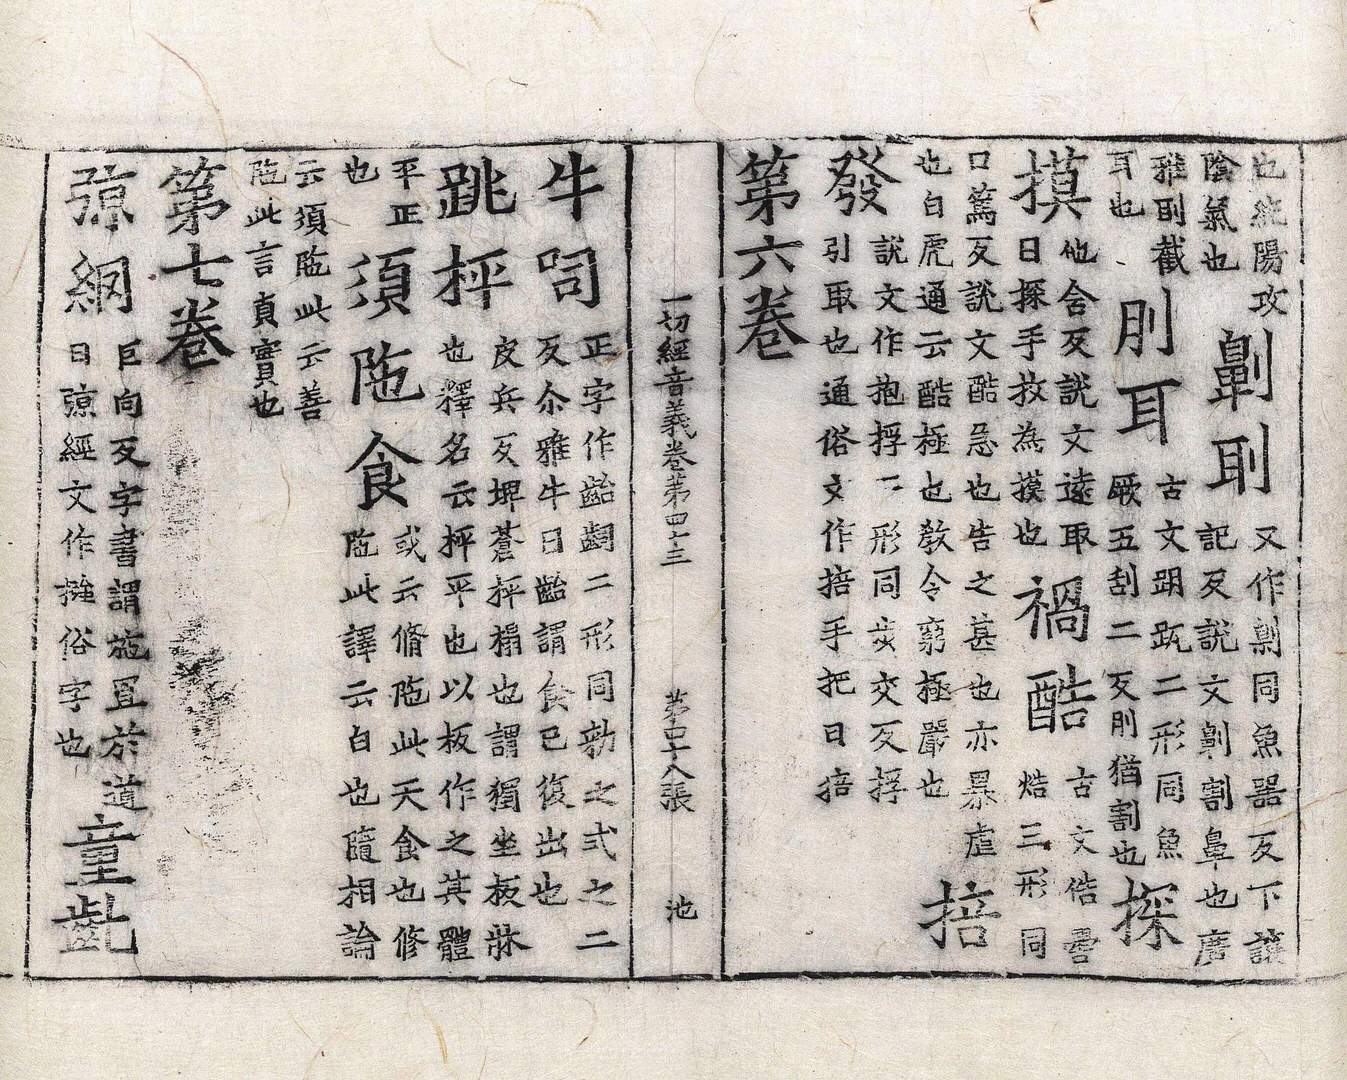 也純陽攻
陰氣也
劓刵
又作劓同魚器反下讓
記反說文劓割鼻也廣
雅刵截
耳也
刖耳
古文跀䟠二形同魚
厥五刮二反刖猶割也
探
摸
他含反說文遠取
曰探手㧊為摸也
禍酷
古文俈嚳
焅三形同
口篤反說文酷急也告之甚也亦暴虐
也白虎通云酷極也教令窮極嚴也
掊
發
說文作抱捊二形同步交反捊
引取也通俗文作掊手把曰掊
第六卷
一切經音義卷第四十三
苐十八張
池
牛呞
正字作齝齣二形同勑之式之二
反尒雅牛曰齝謂食已復出也
跳枰
皮兵反埤蒼枰榻也謂獨坐板牀
也釋名云枰平也以板作之其體
平正
也
須陁食
或云脩陁此天食也修
陁此譯云白也隨相論
云須陁此云善
陁此言真實也
第七卷
弶網
巨向反字書謂施罥於道
曰弶經文作摾俗字也
童齔